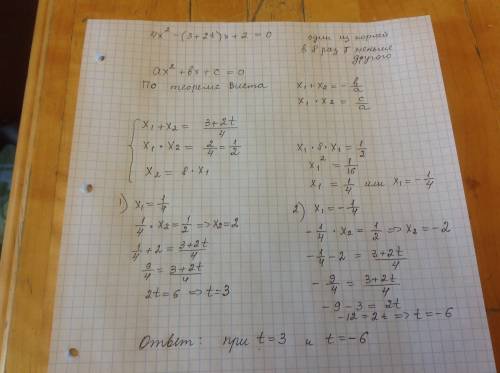 4x² - (3+2t)x + 2 = 0
один из корней
в 8 раз меньше
другого
ax² + bx + c = 0
По теореме Виета
x₁ + x₂ = -b/a
x₁ · x₂ = c/a
x₁ + x₂ = (3+2t)/4
x₁ · x₂ = 2/4 = 1/2
x₂ = 8 · x₁
x₁ · 8 · x₁ = 1/2
x₁² = 1/16
x₁ = 1/4 или x₁ = -1/4
1) x₁ = 1/4
1/4 · x₂ = 1/2 => x₂ = 2
1/4 + 2 = (3+2t)/4
9/4 = (3+2t)/4
2t = 6 => t = 3
2) x₁ = -1/4
-1/4 · x₂ = 1/2 => x₂ = -2
-1/4 - 2 = (3+2t)/4
-9/4 = (3+2t)/4
-9 - 3 = 2t
-12 = 2t => t = -6
Ответ: при t = 3 и t = -6